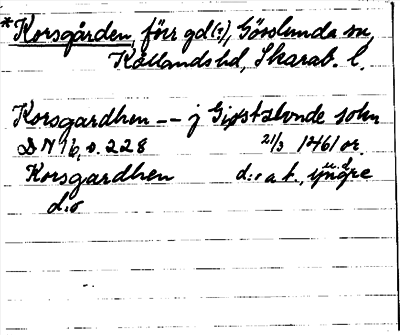 *Korsgården, förr gd(?), Gösslunda sn,
Kållands hd, Skarab. l.
Korsgardhen -- j Giøstzlunde sokn
DN 16, s. 228 21/3 1461 or.
Korsgardhen d:o a t., yngre
d:o